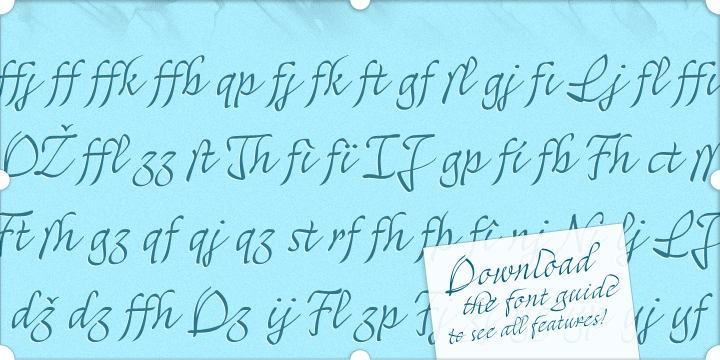 ffj ff ffk ffb qp fj fk ft gf ſl gj fi Lj fl ffi
DŽ ffl zz ſt Th fî fï IJ gp fí fb Fh ct
Ft ſh gz qf qj qz st rf fh fþ fì nj Nj lj LJ
dž dz ffh Dz ij Fl zp yj yf
Download
the font guide
to see all features!